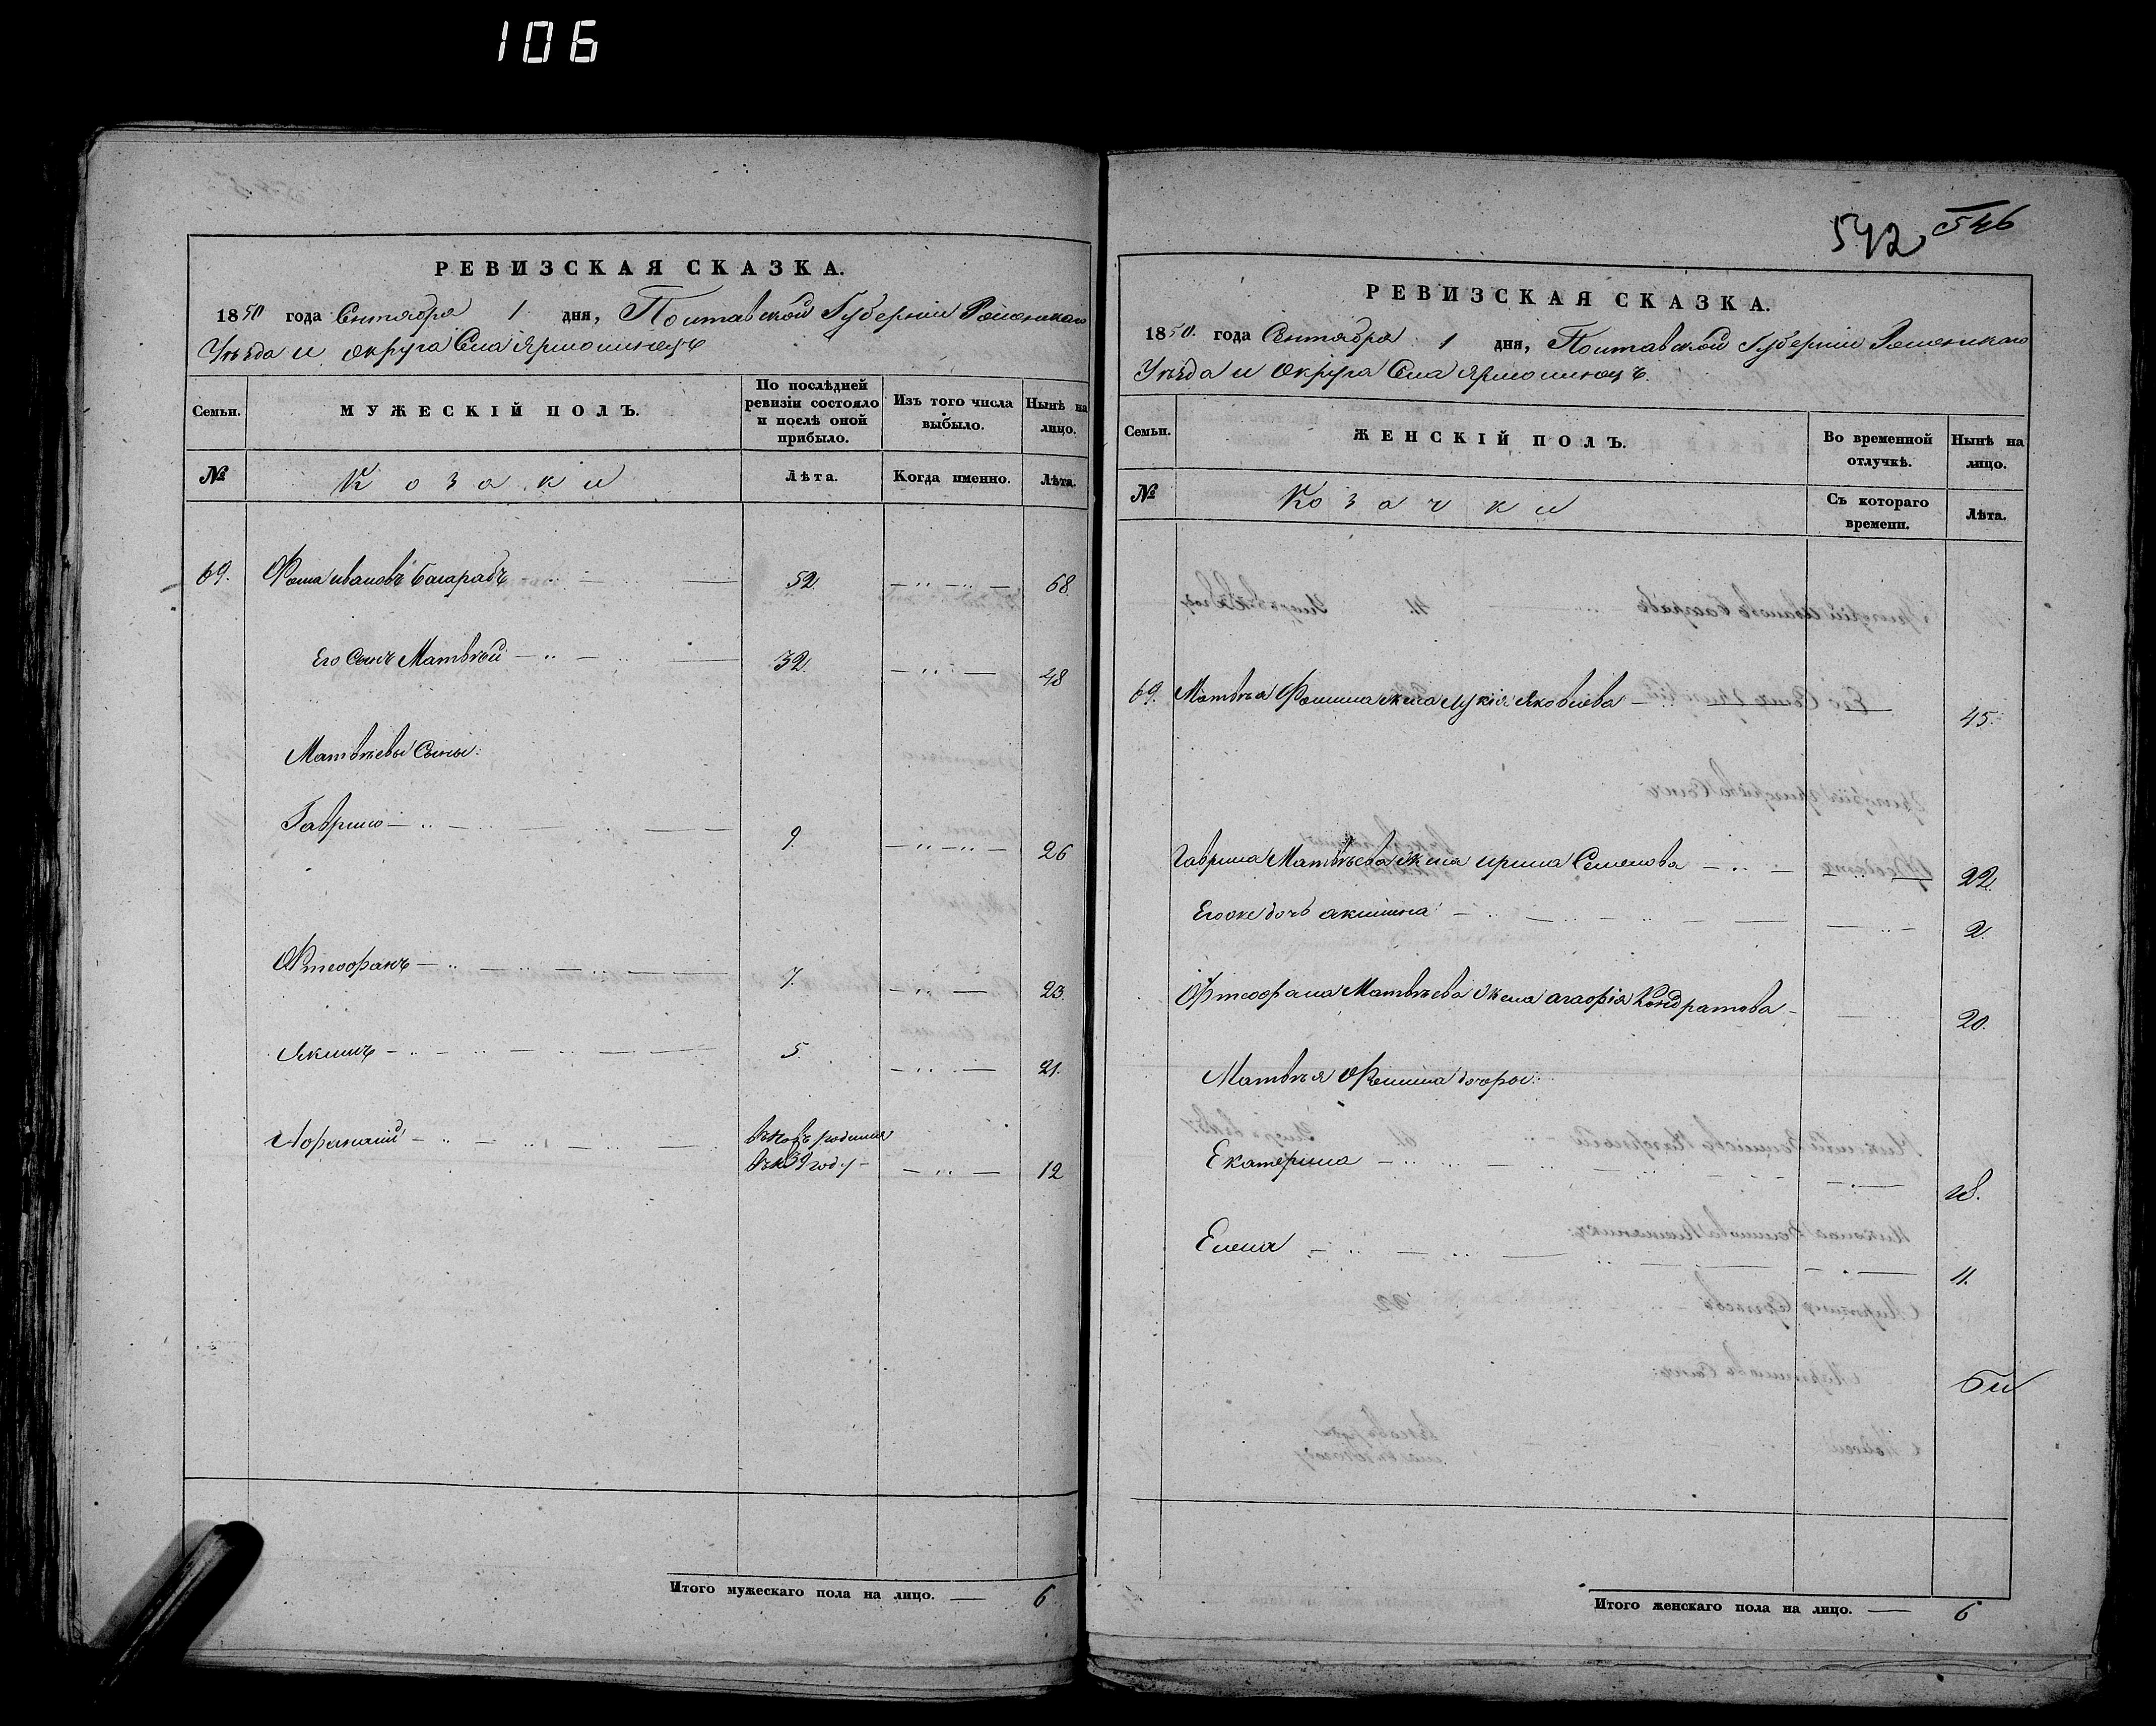 106
РЕВИЗСКАЯ СКАЗКА.
1850 года Сентября 1 дня, Полтавской Губерніи Роменскаго
Уѣзда и округа Села Ярмолинецъ
Семьи. МУЖЕСКІЙ ПОЛЪ. По послѣдней ревизіи состояло и послѣ оной прибыло. Изъ того числа выбыло. Нынѣ на лицо.
№ Козаки Лѣта. Когда именно. Лѣта.
69. Фома Ивановъ Багарабъ 52. 68.
Его Сынъ Матвѣй 32. 48
Матвѣевы Сыны:
Гаврило 9. 26
Фтеофанъ 7. 23.
Якимъ 5. 21.
Афанасій въ новѣ рожденъ
въ 1839 году 12
Итого мужескаго пола на лицо. 6
542 546
РЕВИЗСКАЯ СКАЗКА.
1850. года Сентября 1 дня, Полтавской Губерніи Роменскаго
Уѣзда и Округа Села Ярмолинецъ.
Семьи. ЖЕНСКІЙ ПОЛЪ. Во временной отлучкѣ. Нынѣ на лицо.
№ Козачки Съ котораго времени. Лѣта.
69. Матвѣя Фомина жена Лукія Яковлева 45.
Гаврила Матвѣева жена Ирина Семенова 22
Его же дочь Акилина 2.
Фтеофана Матвѣева жена Агафія Кондратова 20.
Матвѣя Фомина дочери:
Екатерина 18.
Елена 11.
Итого женскаго пола на лицо. 6